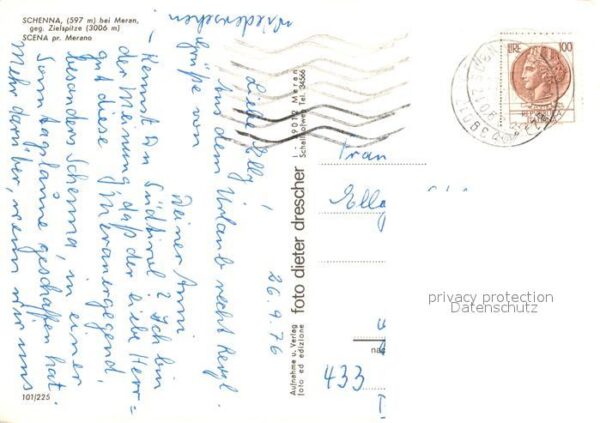 SCHENNA, (597 m) bei Meran,
geg. Zielspitze (3006 m)
SCENA pr. Merano
26.9.76
Liebe Elly!
Aus dem Urlaub recht herzl.
Grüße von
Deiner Anni
- Kennst Du Südtirol? Ich bin
der Meinung, daß der liebe Herr=
gott diese Meranergegend,
besonders Schenna, in einer
Sonntagslaune geschaffen hat.
Mehr darüber, wenn wir uns
wiedersehen
101/225
Aufnahme u. Verlag
foto ed edizione
foto dieter drescher
I - 39012 Meran
Schallhofweg Tel. 34566
LIRE 100
Frau
Elly
433
privacy protection
Datenschutz